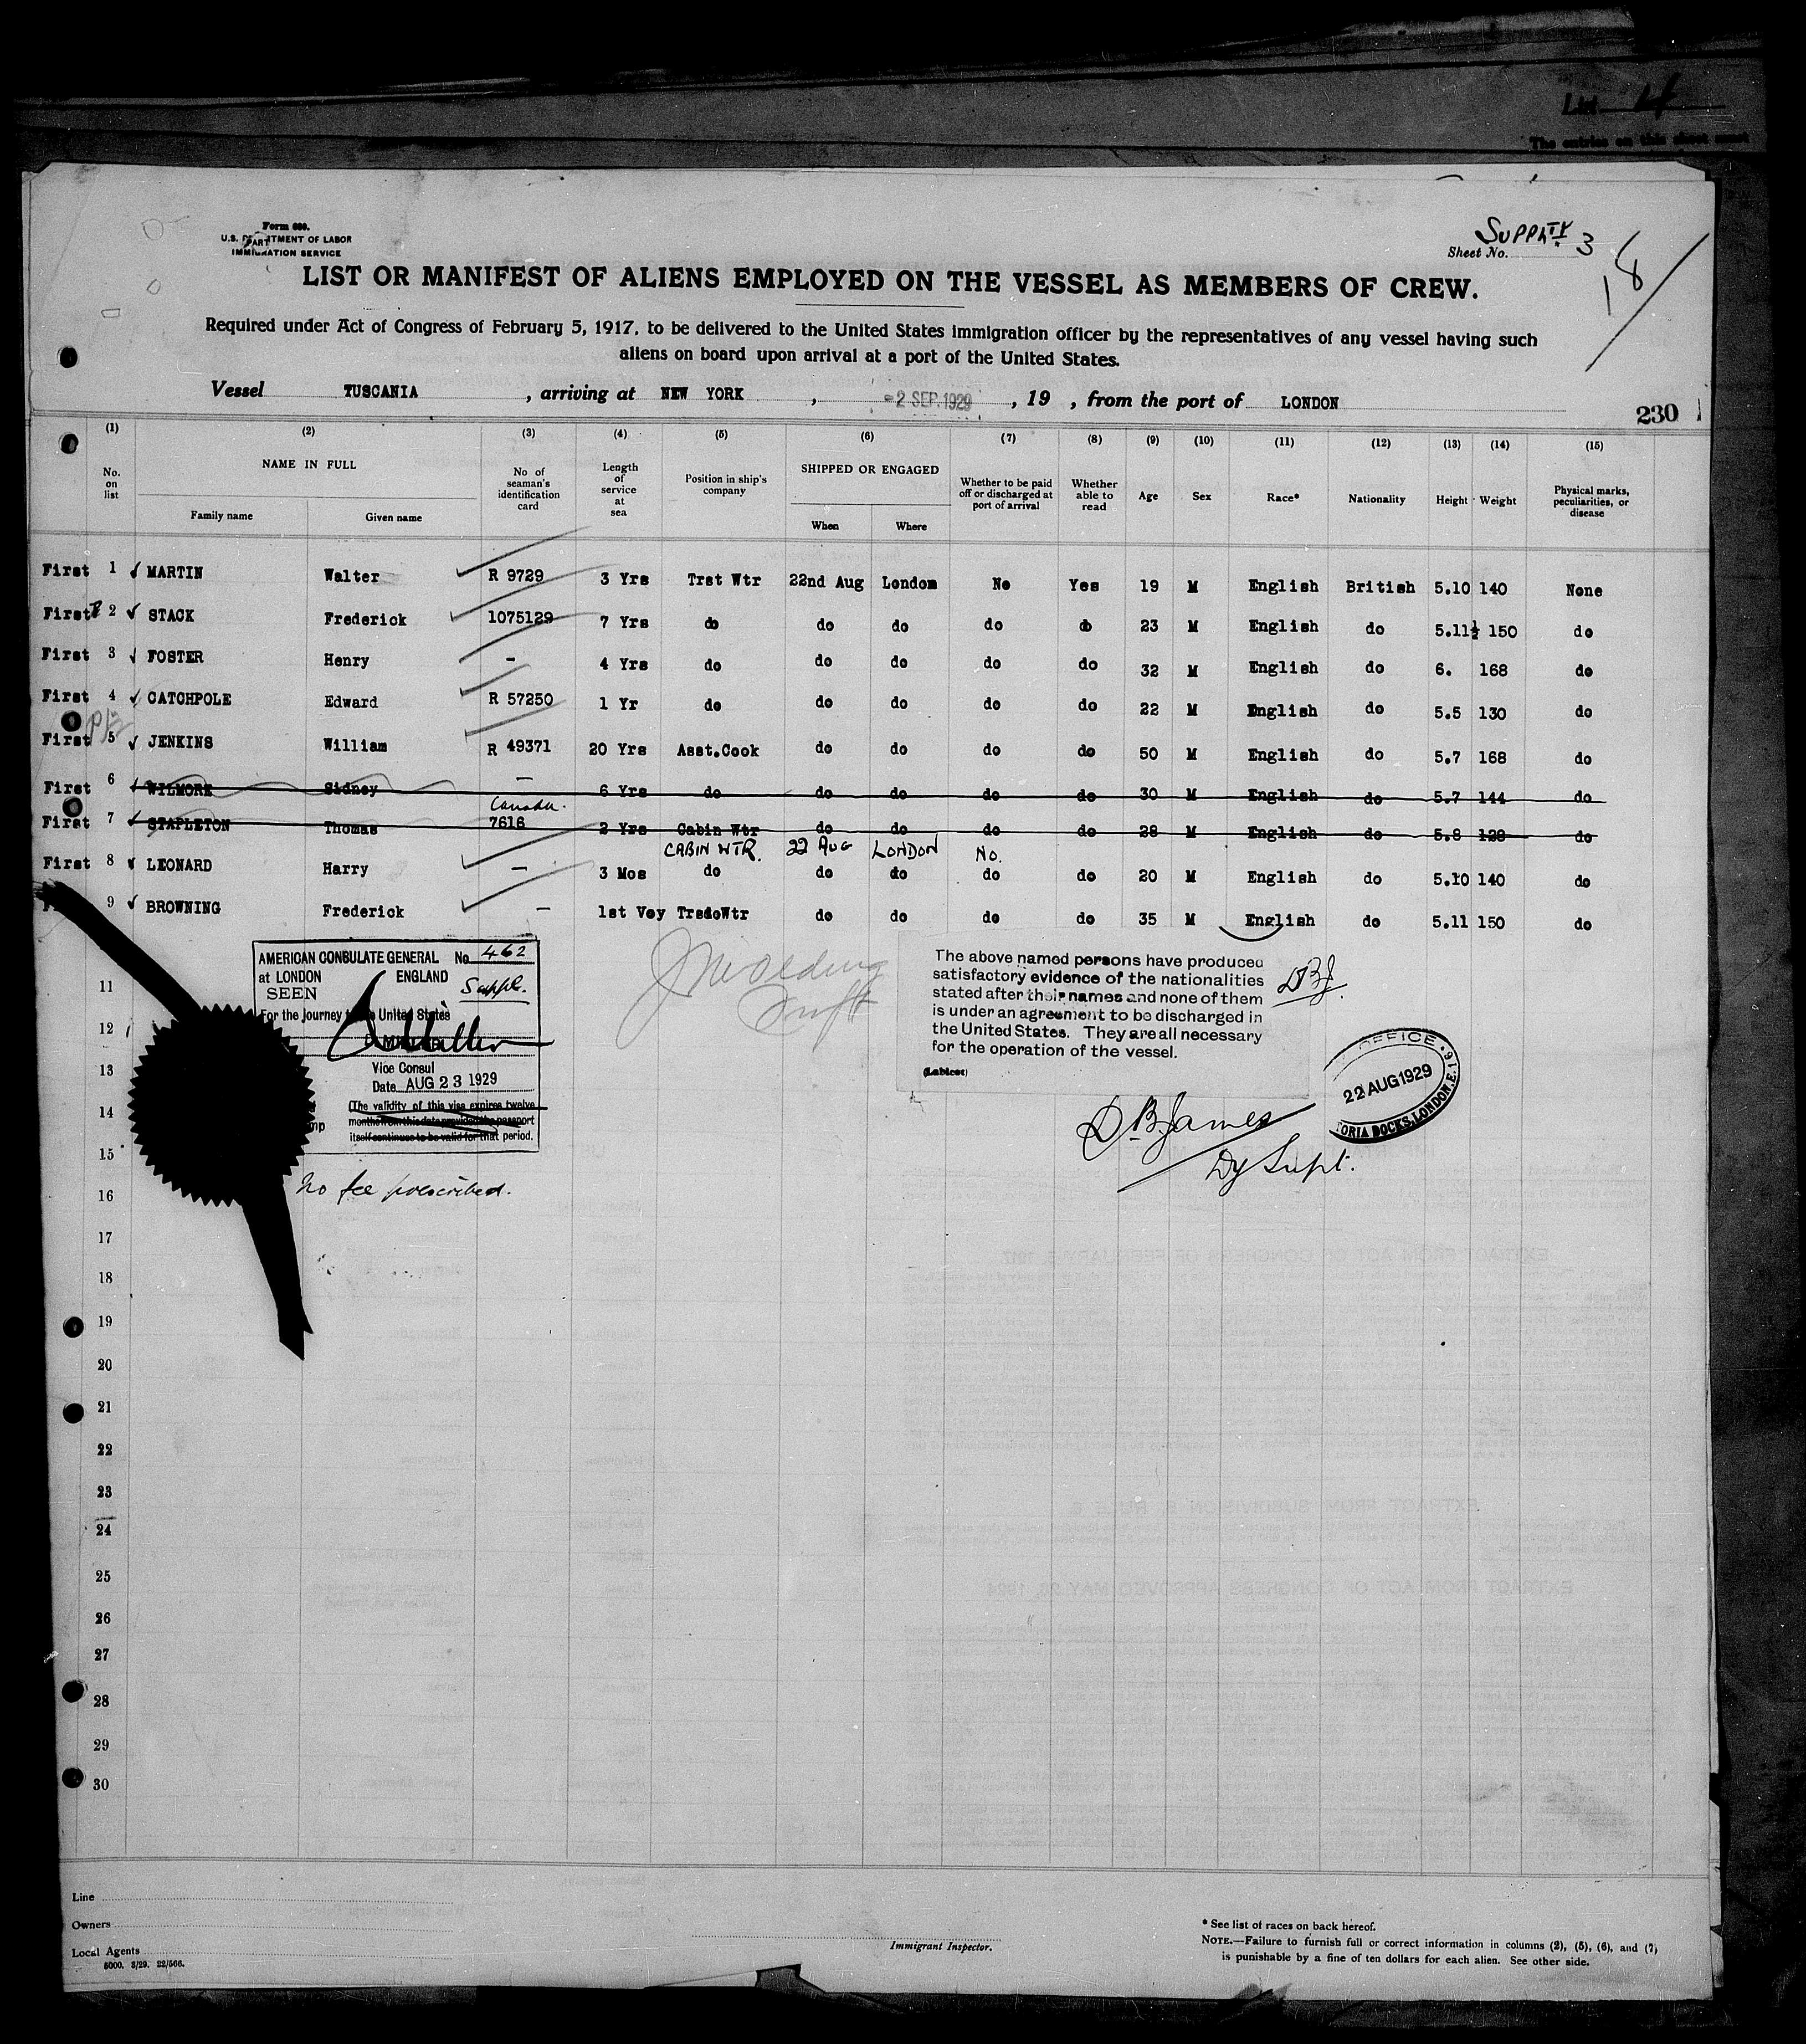 List 4
The entries on this sheet must
Form 680.
U.S. DEPARTMENT OF LABOR
IMMIGRATION SERVICE
Sheet No. 3
18
LIST OR MANIFEST OF ALIENS EMPLOYED ON THE VESSEL AS MEMBERS OF CREW.
Required under Act of Congress of February 5, 1917, to be delivered to the United States immigration officer by the representatives of any vessel having such
aliens on board upon arrival at a port of the United States.
Vessel TUSCANIA , arriving at NEW YORK , -2 SEP.1929 , 19 , from the port of LONDON
230
(1) (2) (3) (4) (5) (6) (7) (8) (9) (10) (11) (12) (13) (14) (15)
No. on list NAME IN FULL Family name Given name No of seaman's identification card Length of service at sea Position in ship's company SHIPPED OR ENGAGED When Where Whether to be paid off or discharged at port of arrival Whether able to read Age Sex Race* Nationality Height Weight Physical marks, peculiarities, or disease
First 1 MARTIN Walter R 9729 3 Yrs Trst Wtr 22nd Aug London No Yes 19 M English British 5.10 140 None
First 2 STACK Frederick 1075129 7 Yrs do do do do do 23 M English do 5.11½ 150 do
First 3 FOSTER Henry - 4 Yrs do do do do do 32 M English do 6. 168 do
First 4 CATCHPOLE Edward R 57250 1 Yr do do do do do 22 M English do 5.5 130 do
First 5 JENKINS William R 49371 20 Yrs Asst.Cook do do do do 50 M English do 5.7 168 do
First 6 WILMORE Sidney - 6 Yrs do do do do do 30 M English do 5.7 144 do
Canada.
First 7 STAPLETON Thomas 7616 2 Yrs Cabin Wtr do do do do 28 M English do 5.8 128 do
CABIN WTR. 22 AUG LONDON No.
First 8 LEONARD Harry - 3 Mos do do do do do 20 M English do 5.10 140 do
9 BROWNING Frederick - 1st Voy TrsdoWtr do do do do 35 M English do 5.11 150 do
AMERICAN CONSULATE GENERAL No. 462
at LONDON ENGLAND Suppl.
SEEN
For the Journey to the United States
Vice Consul
Date AUG 23 1929
(The validity of this visa expires twelve
months from this date provided the passport
itself continues to be valid for that period.
No fee prescribed.
The above named persons have produced
satisfactory evidence of the nationalities
stated after their names and none of them
is under an agreement to be discharged in
the United States. They are all necessary
for the operation of the vessel.
(Labicot)
DBJ.
OFFICE
22 AUG 1929
TORIA DOCKS, LONDON, E.16
D B James
Dy Supt.
11
12
13
14
15
16
17
18
19
20
21
22
23
24
25
26
27
28
29
30
Line
Owners
Local Agents
5000. 3/29. 22/566.
Immigrant Inspector.
* See list of races on back hereof.
NOTE.—Failure to furnish full or correct information in columns (2), (5), (6), and (7)
is punishable by a fine of ten dollars for each alien. See other side.